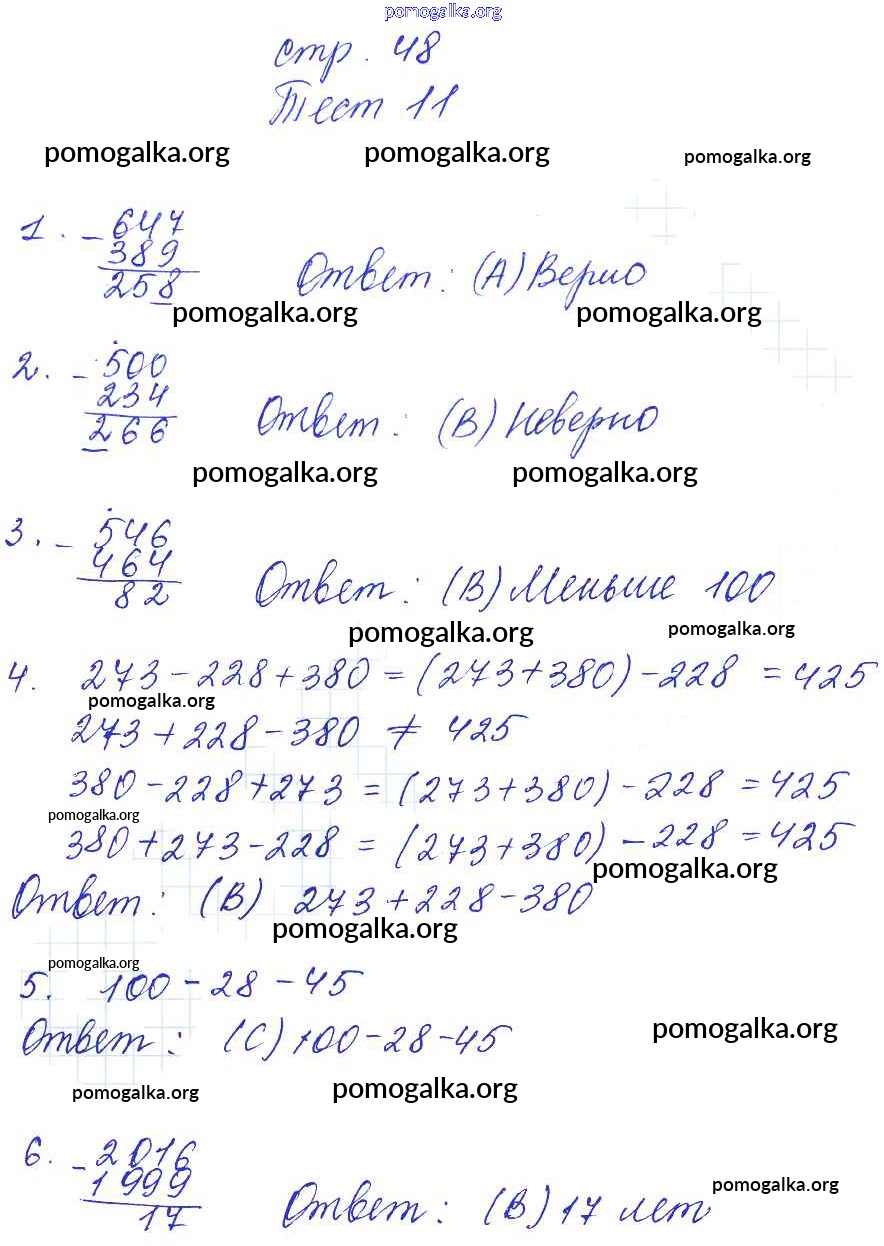 pomogalka.org
стр. 48
Тест 11
pomogalka.org pomogalka.org pomogalka.org
1. - 647
389
258 Ответ: (А) Верно
pomogalka.org pomogalka.org
2. - 500
234
266 Ответ: (В) Неверно
pomogalka.org pomogalka.org
3. - 546
464
82 Ответ: (В) Меньше 100
pomogalka.org pomogalka.org
4. 273 - 228 + 380 = (273 + 380) - 228 = 425
pomogalka.org
273 + 228 - 380 ≠ 425
380 - 228 + 273 = (273 + 380) - 228 = 425
pomogalka.org
380 + 273 - 228 = (273 + 380) - 228 = 425
pomogalka.org
Ответ: (В) 273 + 228 - 380
pomogalka.org
pomogalka.org
5. 100 - 28 - 45
Ответ: (С) 100 - 28 - 45
pomogalka.org
pomogalka.org pomogalka.org
6. - 2016
1999
17 Ответ: (В) 17 лет
pomogalka.org